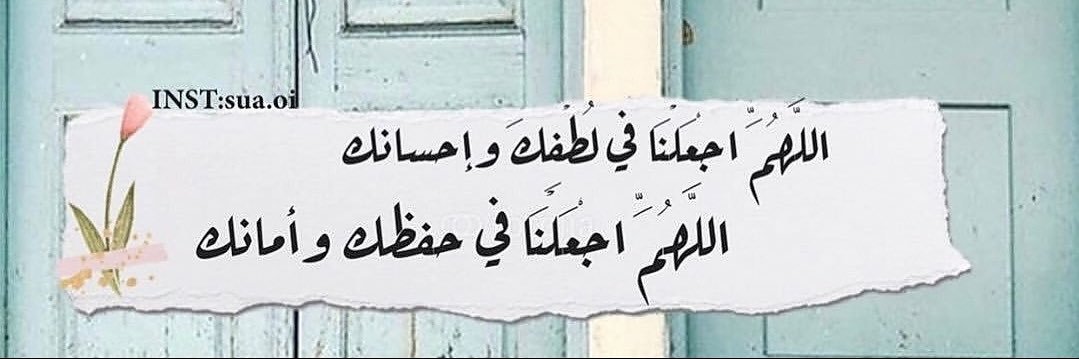 INST:sua.oi
اللَّهُمَّ اجْعَلْنَا في لُطْفكَ وإحسانك
اللَّهُمَّ اجْعَلْنَا في حفظك وأمانك